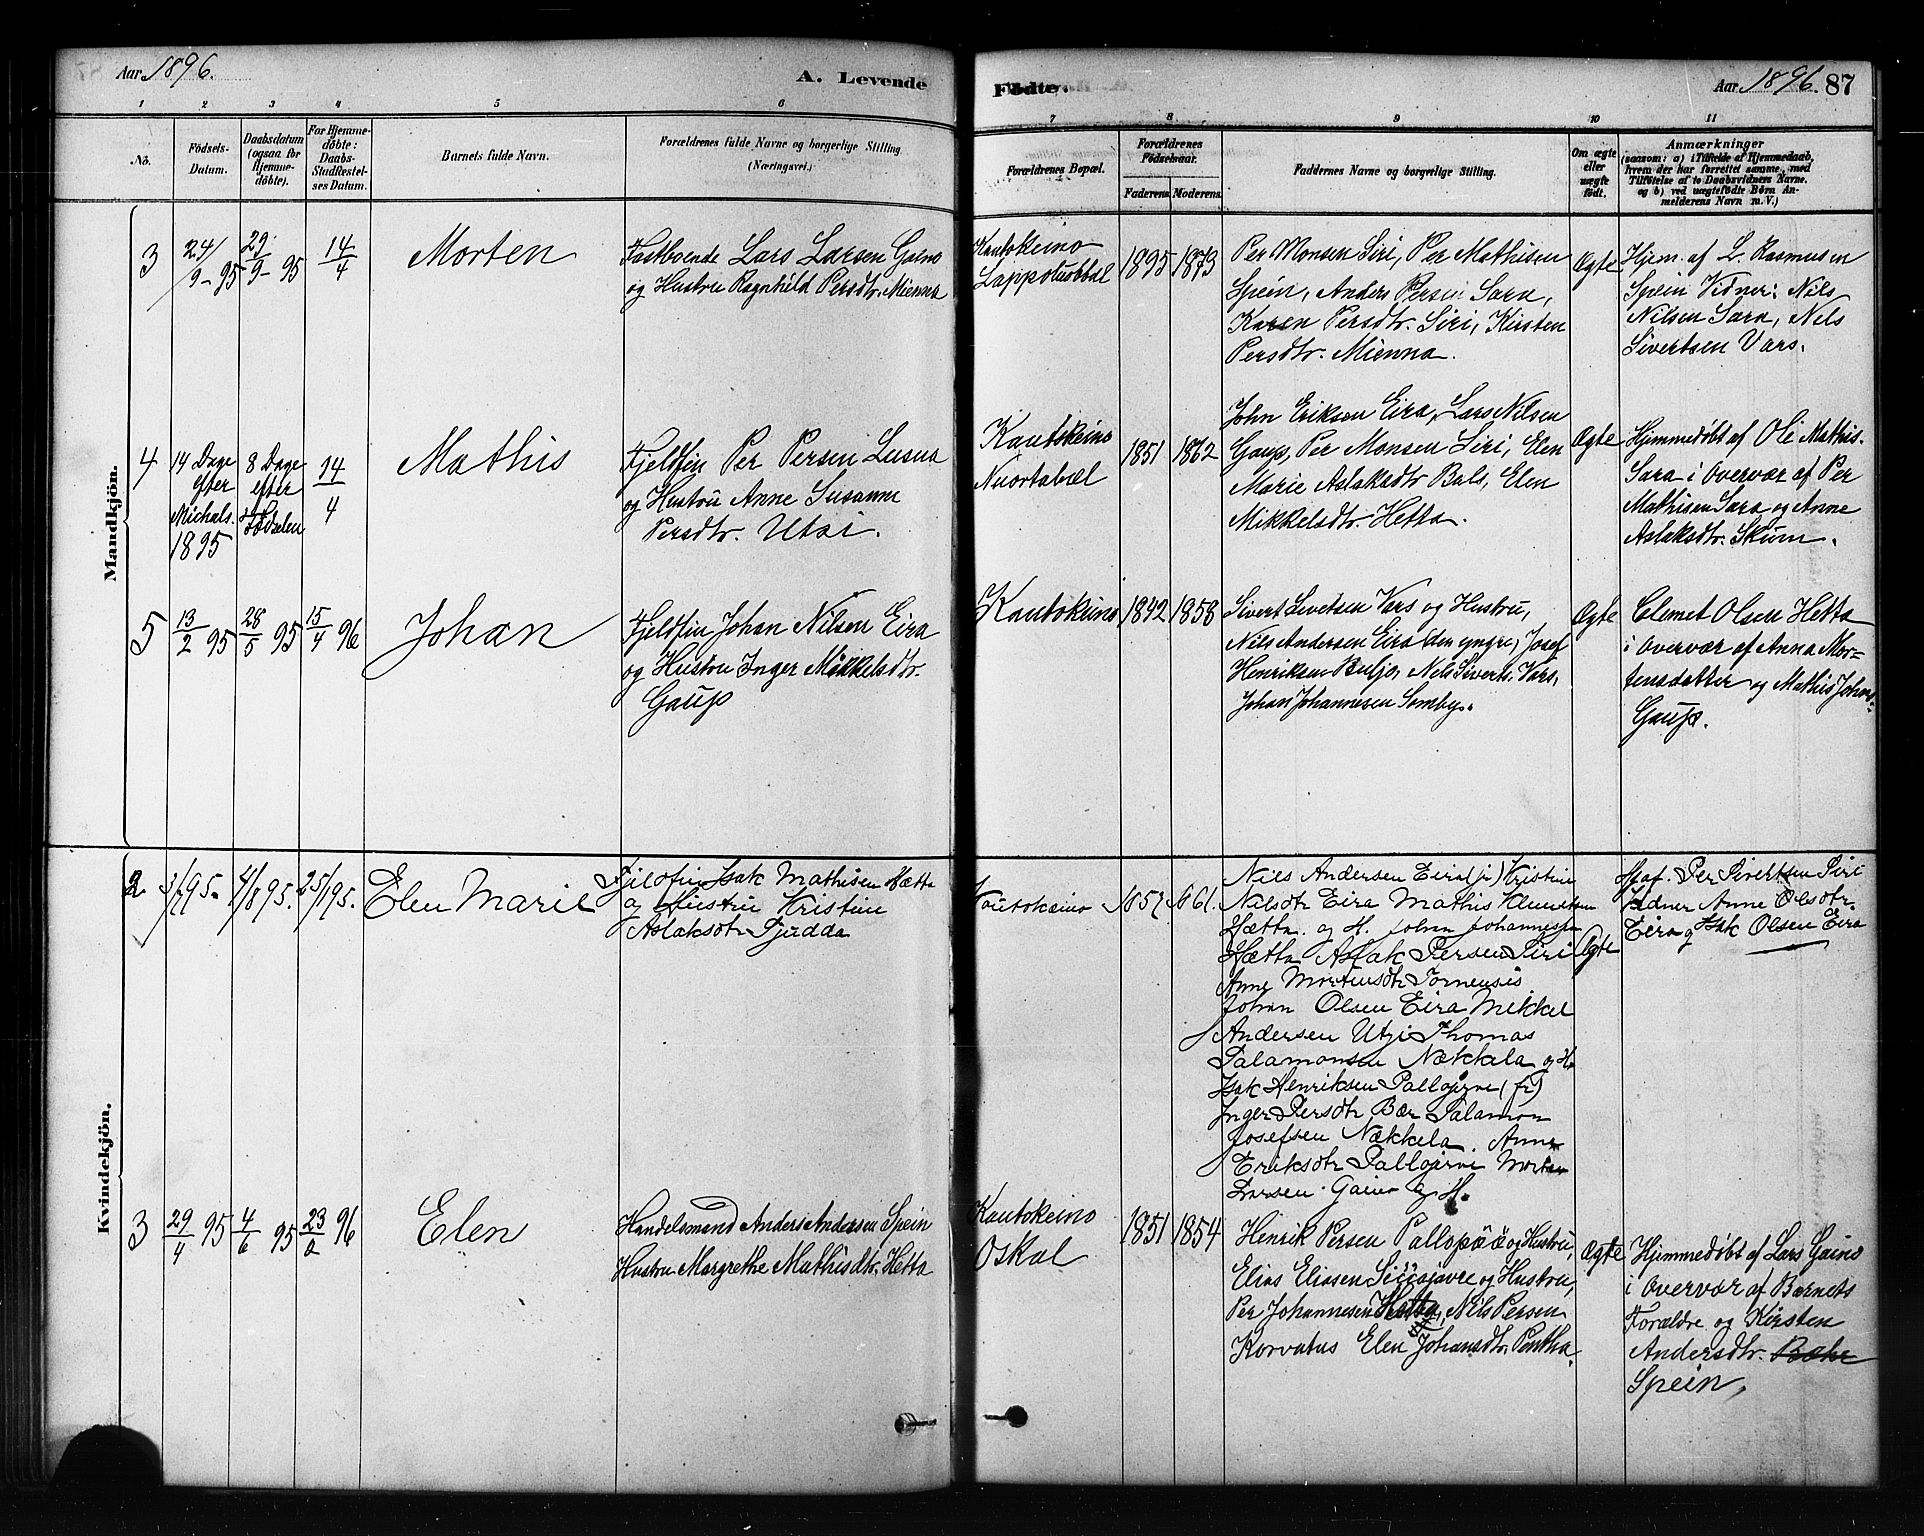 Aar 1896.
A. Levende
Fødte.
Aar 1896. 87
1 2 3 4 5 6 7 8 9 10 11
No.
Fødsels-
Datum.
Daabsdatum
(ogsaa for
Hjemme-
døbte).
For Hjemme-
døbte:
Daabs-
Stadfæstel-
ses Datum.
Barnets fulde Navn.
Forældrenes fulde Navne og borgerlige Stilling
(Næringsvei.)
Forældrenes Bopæl.
Forældrenes
Fødselsaar.
Faderens. Moderens.
Faddernes Navne og borgerlige Stilling.
Om ægte
eller
uægte
født.
Anmærkninger
(saasom: a) i Tilfælde af Hjemmedaab,
hvem der har forrettet samme, med
Tilføielse af to Daabsvidners Navne.
og b) ved uægtefødte Børn An-
melderens Navn m. V.)
Mandkjön.
3
24/9-95
29/9-95
14/4
Morten
Fastboende Lars Larsen Gaino
og Hustru Ragnhild Persdtr. Mienna
Kautokeino
Lappoluobbal
1895 1873
Per Monsen Siri, Per Mathisen
Spein, Anders Persen Sara,
Karen Persdtr. Siri, Kirsten
Persdtr. Mienna.
Ægte
Hjem. af L. Rasmusen
Spein Vidner: Nils
Nilsen Sara, Nels
Sivertsen Vars.
4
14 Dage
efter
Michals.
1895
8 Dage
efter
Fødselen
14/4
Mathis
Fjeldfin Per Persen Lusua
og Hustru Anne Susanne
Persdtr. Utsi.
Kautokeino
Nuortabæl
1851 1862
John Eriksen Eira, Lars Nilsen
Gaup, Per Monsen Siri, Elen
Marie Aslaksdtr Bals, Elen
Mikkelsdtr. Hetta.
Ægte
Hjemmedøbt af Ole Mathis.
Sara i Overvær af Per
Mathisen Sara og Anne
Aslaksdtr. Skum.
5
13/2 95
28/5 95
15/4 96
Johan
Fjeldfin Johan Nilsen Eira
og Hustru Inger Mikkelsdtr.
Gaup
Kautokeino
1842 1858
Sivert Sivetsen Vars og Hustru,
Nils Andersen Eira den yngre, Josef
Henriksen Buljo, Nels Siverts. Vars,
Johan Johannesen Somby.
Ægte
Clemet Olsen Hetta
i Overvær af Anna Mor-
tensdatter og Mathis Johns.
Gaup.
Kvindekjön.
2
3/7 95.
4/8 95.
25/1 95.
Elen Marie
Fjeldfin Isak Mathisen Hætta
og Hustru Kristine
Aslaksdtr Sjudda
Koutokeino
1857 1861.
Niels Andersen Eira (jr) Kristine
Nilsdtr Eira Mathis Klemetsen
Hætta. og H. Johan Johannessen
Hætta Aslak Persen Siri
Anne Mortensdtr Tornensis
Johan Olsen Eira Mikkel
Andersen Utsi Thomas
Salamonsen Nækkela og H.
Isak Henriksen Pallojerve (fr)
Inger Persdtr Bær Salamon
Josefsen Nækkela. Anne
Eriksdtr Pallojerve Morten
Larsen Gaino og H.
Ægte
Hj. af. Per Sivertsen Siri
Vidner Anne Olsdtr.
Eira og Isak Olsen Eira
3
29/4 95
4/6 95
23/2 96
Elen
Handelsmand Anders Andersen Spein
Hustru Margrethe Mathisdtr. Hetta
Kautokeino
Oskal
1851 1854
Henrik Persen Pallopää og Hustru,
Elias Eliasen Siiasjavre og Hustru,
Per Johannesen Hetta, Nils Persen
Korvatus Elen Johansdtr. Pentha.
Ægte
Hjemmedøbt af Lars Gaino
i Overvær af Barnets
Forældre og Kirsten
Andersdtr. Bæhr
Spein.